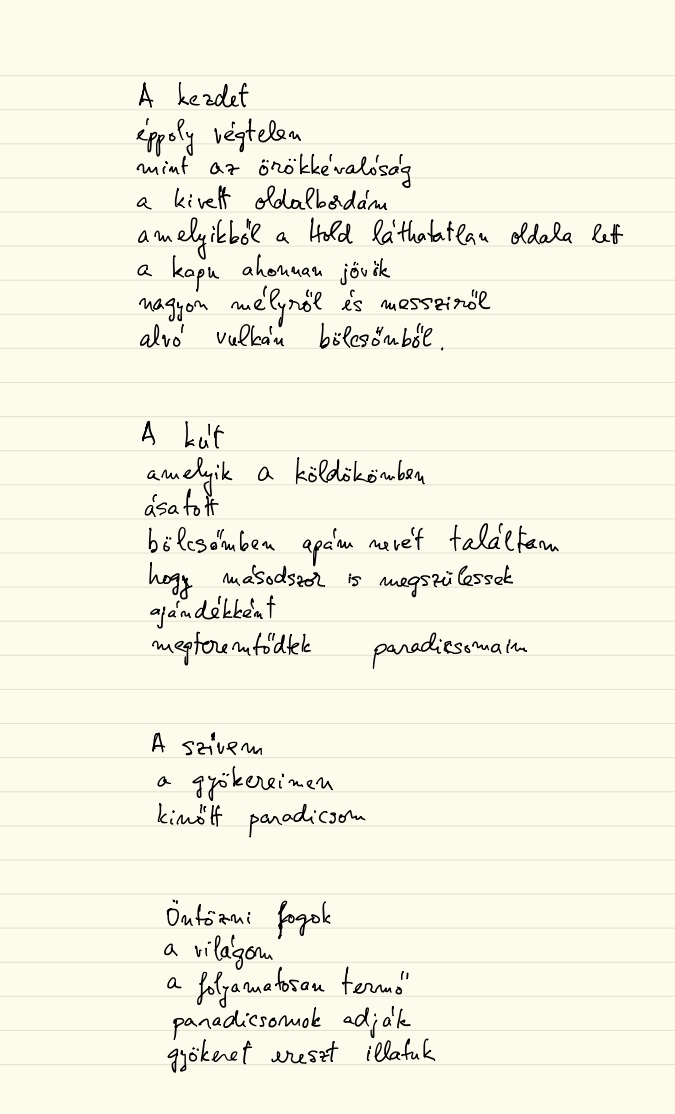 A kezdet
éppoly végtelen
mint az örökkévalóság
a kivett oldalbordám
amelyikből a Hold láthatatlan oldala lett
a kapu ahonnan jövök
nagyon mélyről és messziről
alvó vulkán bölcsőmből.
A kút
amelyik a köldökömben
ásatott
bölcsőmben apám nevét találtam
hogy másodszor is megszülessek
ajándékként
megteremtődtek paradicsomaim
A szívem
a gyökereimen
kinőtt paradicsom
Öntözni fogok
a világom
a folyamatosan termő
paradicsomok adják
gyökeret ereszt illatuk